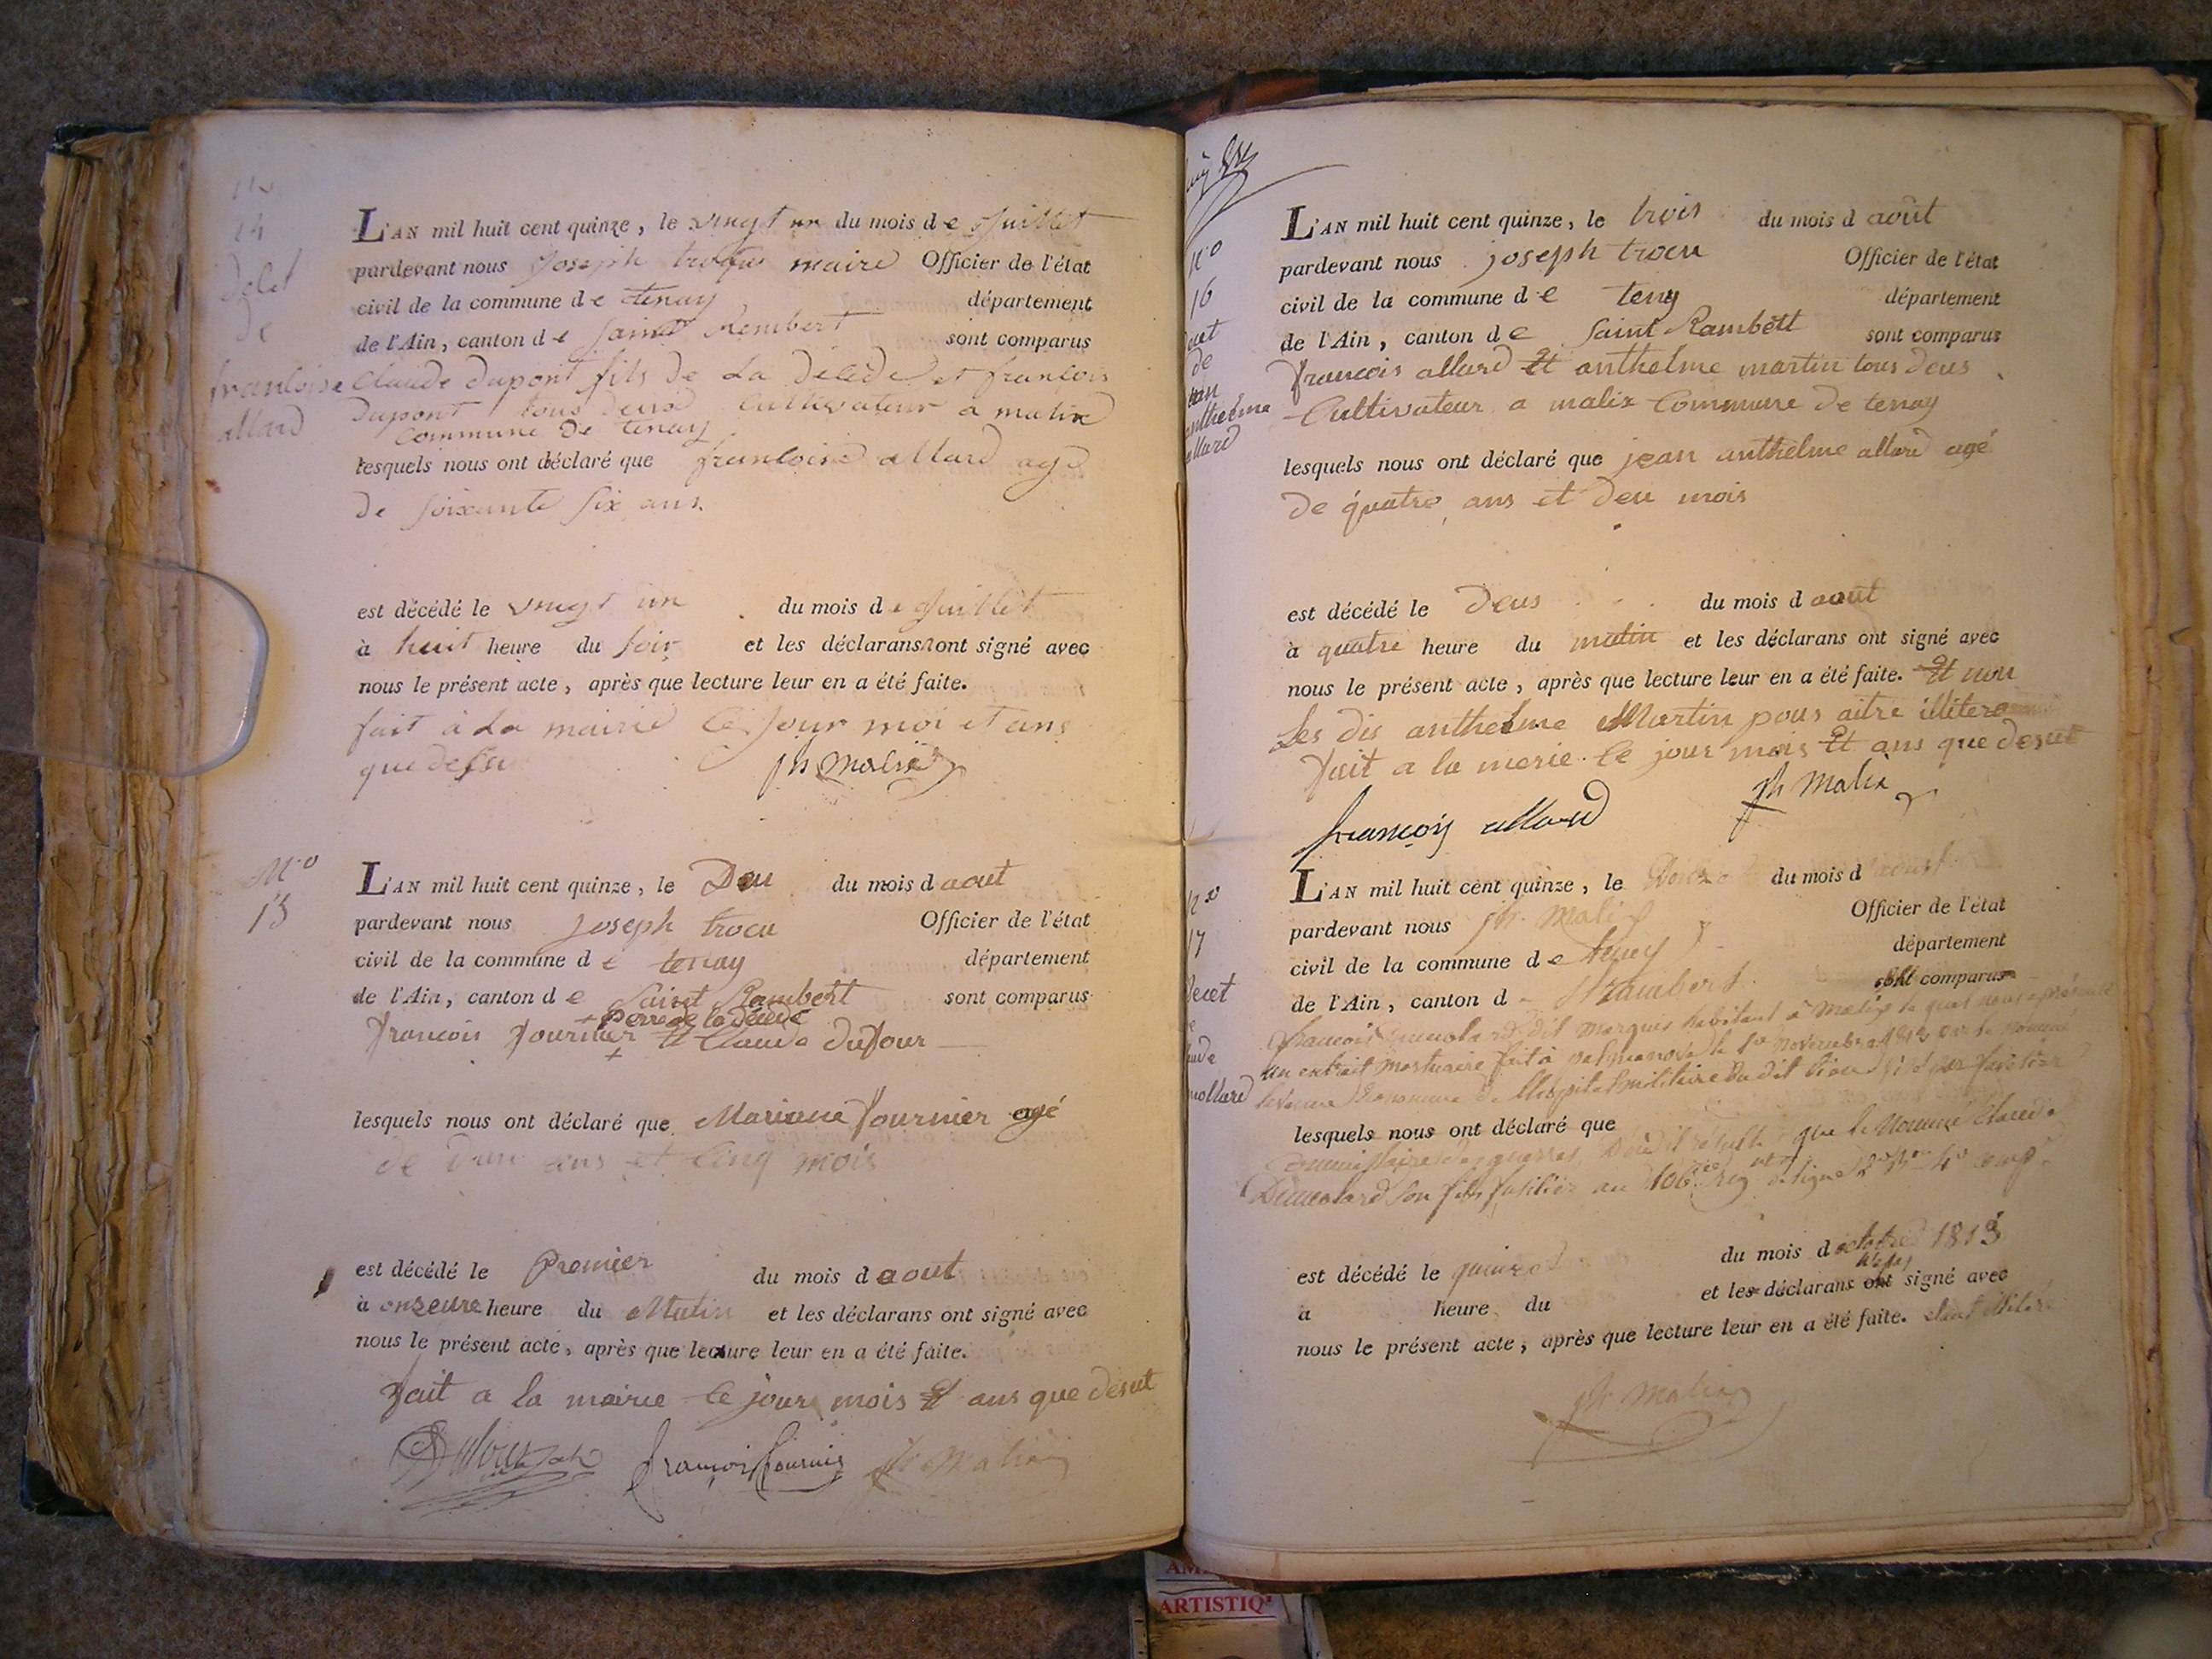 14
decet
de
francoise
allard
L'AN mil huit cent quinze, le vingt un du mois de Juillet
pardevant nous Joseph trocu maire Officier de l'état
civil de la commune de tenay département
de l'Ain, canton de Saint Rembert sont comparus
Claude dupont fils de La décede et francois
dupont tous deux Cultivateur a malix
Commune de tenay
lesquels nous ont déclaré que francoise allard agé
de soixante six ans.
est décédé le vingt un du mois de Juillet
à huit heure du soir et les déclarans ont signé avec
nous le présent acte, après que lecture leur en a été faite.
fait à La mairie le jour moi et ans
que desu
jh Malix
No
15
L'AN mil huit cent quinze, le Deu du mois d aout
pardevant nous Joseph trocu Officier de l'état
civil de la commune de tenay département
de l'Ain, canton de Saint Rambert sont comparus
+ perre de la décédé
francois fournier + et Claude dufour
lesquels nous ont déclaré que Mariane fournier agé
de ans et Cinq mois
est décédé le Premier du mois d aout
à onzeure heure du Matin et les déclarans ont signé avec
nous le présent acte, après que lecture leur en a été faite.
fait a la mairie le jour mois Et ans que désut
françois fournier jh Malix
No
16
decet
de
jean
anthelme
allard
L'AN mil huit cent quinze, le trois du mois d août
pardevant nous joseph trocu Officier de l'état
civil de la commune de teny département
de l'Ain, canton de Saint Rambert sont comparus
francois allard Et anthelme martin tous deus
Cultivateur a malix Commune de tenay
lesquels nous ont déclaré que jean anthelme allard agé
de quatre ans et deu mois
est décédé le Deus du mois d aout
à quatre heure du matin et les déclarans ont signé avec
nous le présent acte, après que lecture leur en a été faite. Et non
Les dis anthelme Martin pous aitre illitere
fait a la merie le jour mois Et ans que desut
jh Malix
françois allard
No
17
decet
L'AN mil huit cent quinze, le Douze du mois d aoust
pardevant nous jh. Malix Officier de l'état
civil de la commune de tenay département
de l'Ain, canton d St Rambert sont comparus
francois dit marquis habitant à Malix le quel nous a présenté
un extrait mortuaire fait à le 1er novembre 1813 par le nommé
de l'hospital militaire du dit lieu
lesquels nous ont déclaré que
Commissaire des guerres, Dou il résulte que le Nommé Claude
son fils fusilier au 106e reg de ligne
est décédé le quinze du mois d octobre 1813
à heure du et les déclarans ont signé avec
nous le présent acte, après que lecture leur en a été faite. étant illitéré
jh Malix
ARTISTIQ